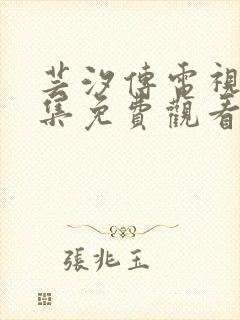 芸汐傳電視
集免費觀看
張兆玉